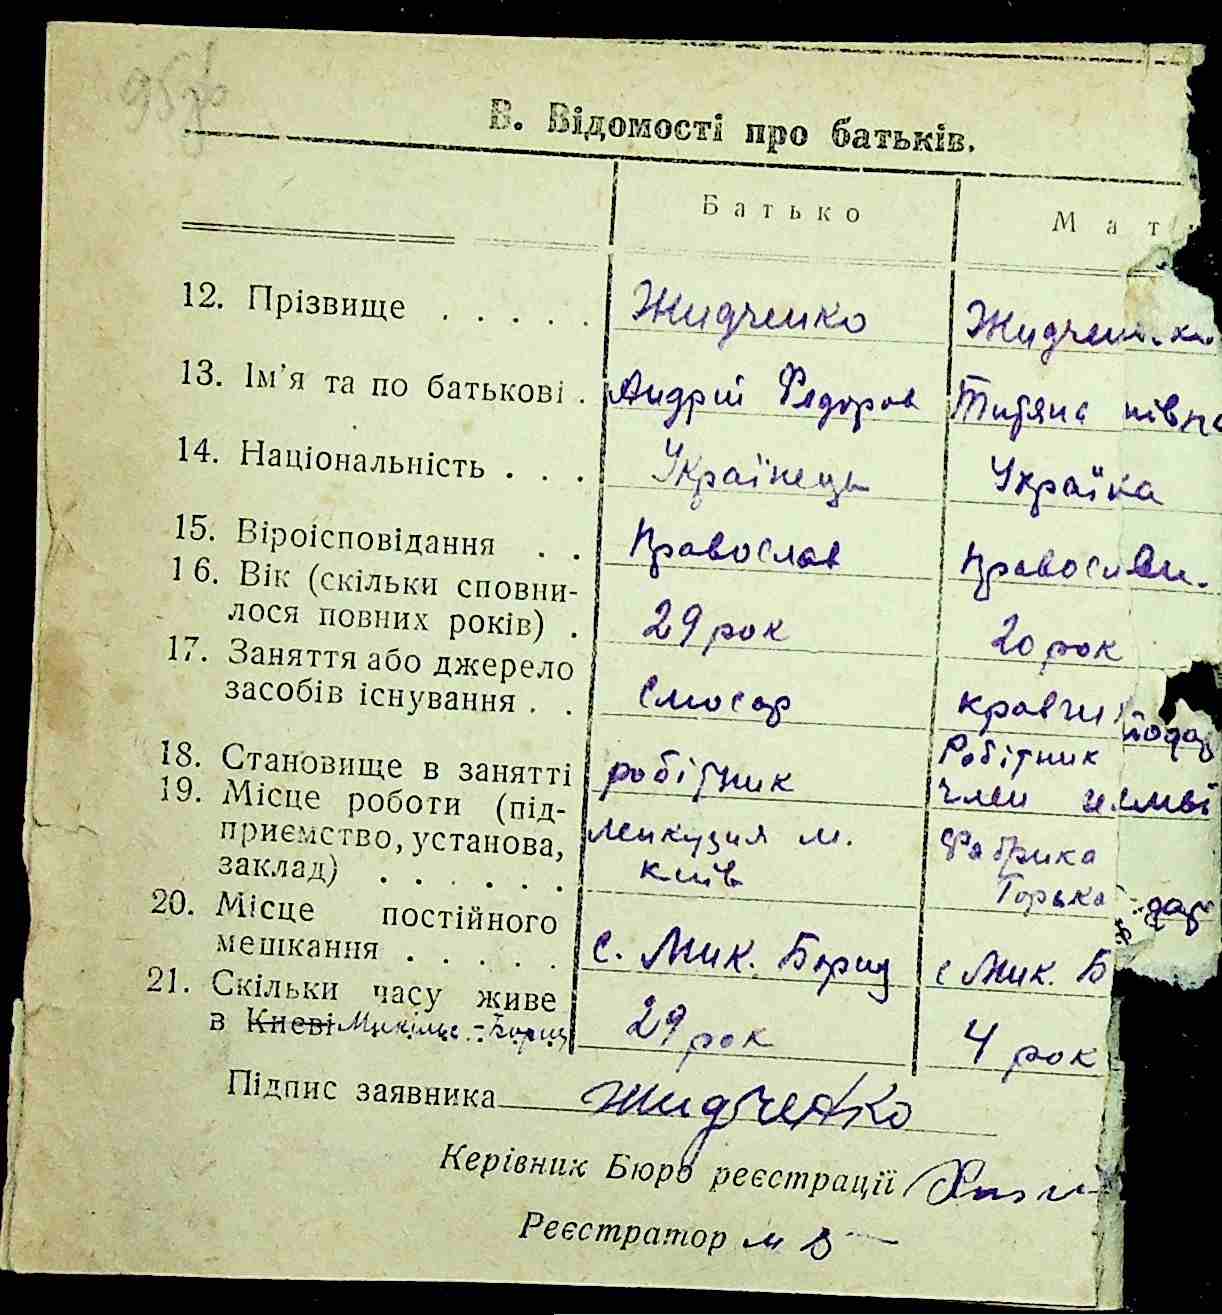 В. Відомості про батьків.
Батько Мат
12. Прізвище . . . . . Жидченко Жидченко
13. Ім'я та по батькові . Андрій Федоров Титяна івна
14. Національність . . . Українець Українка
15. Віроісповідання . . Православ Православн.
16. Вік (скільки сповни-
лося повних років) . 29 рок 20 рок
17. Заняття або джерело
засобів існування . . Слюсар кравчи
18. Становище в занятті робітник Робітник
член
19. Місце роботи (під-
приємство, установа, м. Фабрика
заклад) . . . . . . Київ Горька
20. Місце постійного
мешкання . . . . . с. Мик. Борщ с Мик. Б
21. Скільки часу живе
в Києві Микільс.-Борщ 29 рок 4 рок
Підпис заявника Жидченко
Керівник Бюро реєстрації
Реєстратор